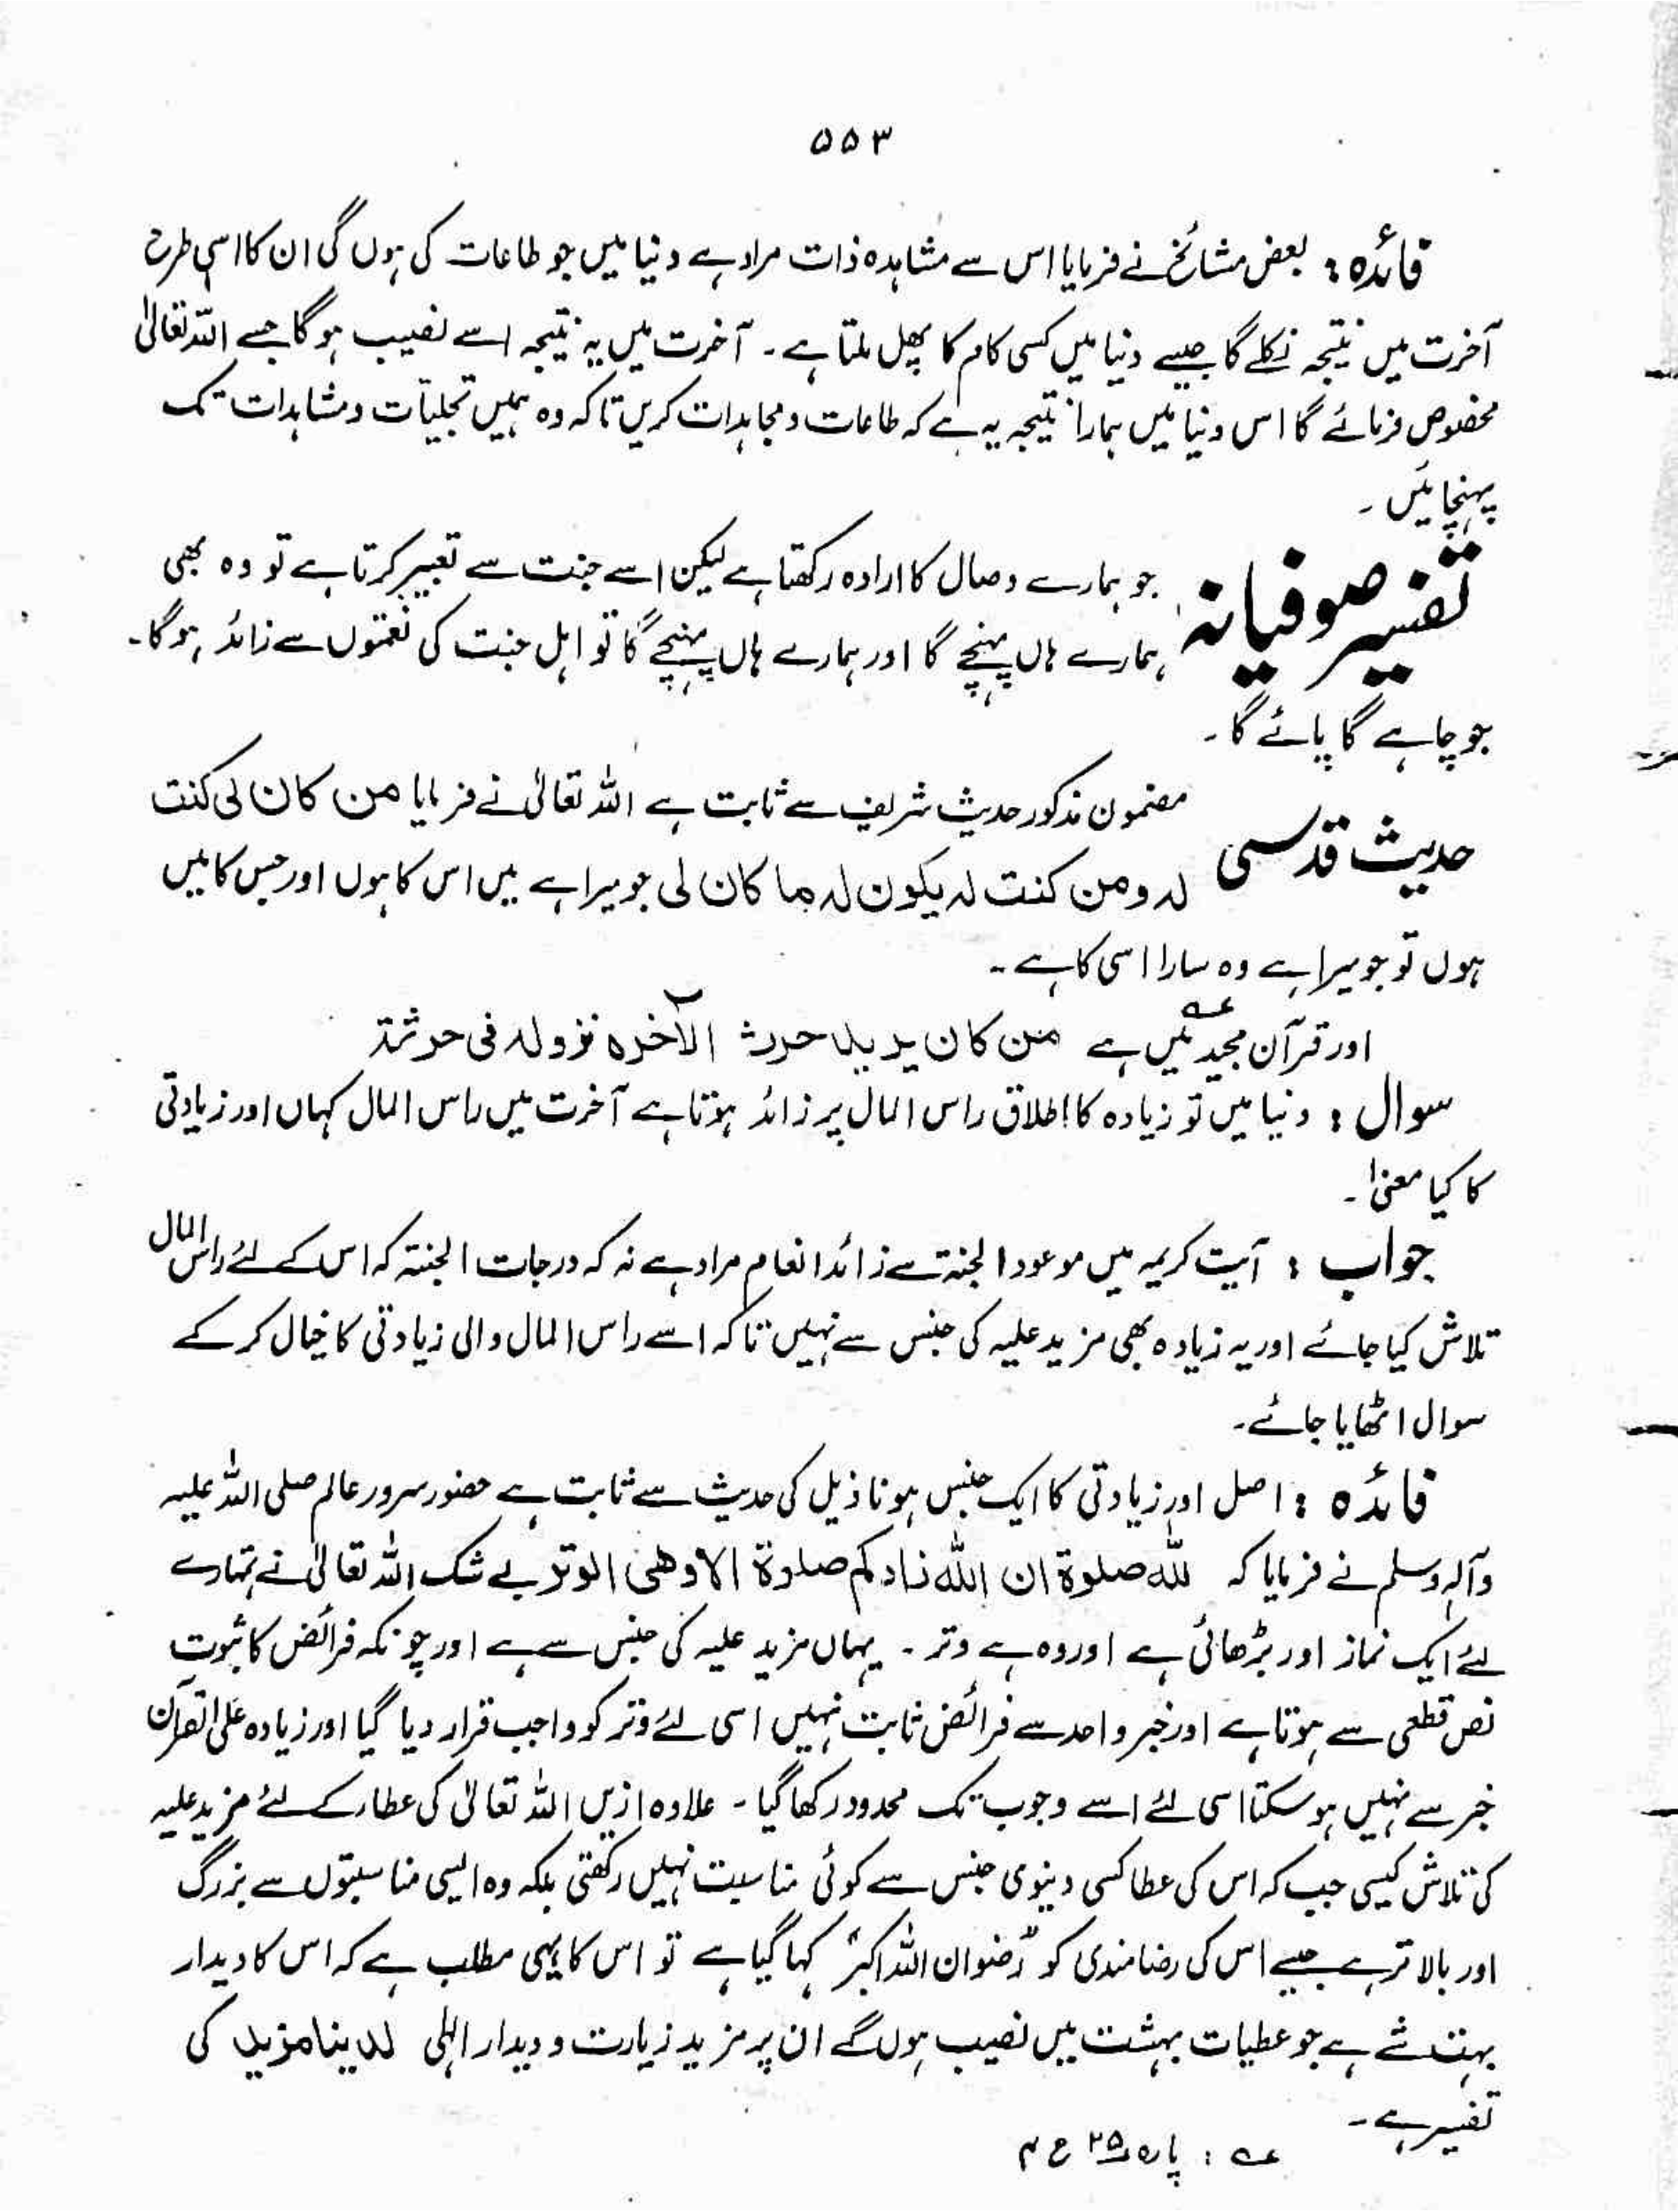 ۵۵۳
فائدہ : بعض مشائخ نے فرمایا اس سے مشاہدہ ذات مراد ہے دنیا میں جو طاعات کی ہوں گی ان کا اسی طرح
آخرت میں نتیجہ نکلے گا جیسے دنیا میں کسی کام کا پھل ملتا ہے ۔ آخرت میں یہ نتیجہ اسے نصیب ہو گا جسے اللہ تعالیٰ
مخصوص فرمائے گا اس دنیا میں ہمارا نتیجہ یہ ہے کہ طاعات و مجاہدات کریں تاکہ وہ ہمیں تجلیات و مشاہدات تک
پہنچائیں ۔
تفسیر صوفیانہ جو ہمارے وصال کا ارادہ رکھتا ہے لیکن اسے جنت سے تعبیر کرتا ہے تو وہ بھی
ہمارے ہاں پہنچے گا اور ہمارے ہاں پہنچے گا تو اہل جنت کی نعمتوں سے زائد ہو گا ۔
جو چاہے گا پائے گا ۔
حدیث قدسی مضمون مذکور حدیث شریف سے ثابت ہے اللہ تعالیٰ نے فرمایا من کان لی کنت
لہ ومن کنت لہ یکون لہ ما کان لی جو میرا ہے میں اس کا ہوں اور جس کا میں
ہوں تو جو میرا ہے وہ سارا اسی کا ہے ۔
اور قرآن مجید میں ہے من کان یرید حرث الآخرہ نزد لہ فی حرثہ
سوال : دنیا میں تو زیادہ کا اطلاق راس المال پر زائد ہوتا ہے آخرت میں راس المال کہاں اور زیادتی
کا کیا معنیٰ ۔
جواب : آیت کریمہ میں موعود الجنۃ سے زائد انعام مراد ہے نہ کہ درجات الجنۃ کہ اس کے لئے راس المال
تلاش کیا جائے اور یہ زیادہ بھی مزید علیہ کی جنس سے نہیں تاکہ اسے راس المال والی زیادتی کا خیال کر کے
سوال اٹھایا جائے ۔
فائدہ : اصل اور زیادتی کا ایک جنس ہونا ذیل کی حدیث سے ثابت ہے حضور سرور عالم صلی اللہ علیہ
وآلہ وسلم نے فرمایا کہ للہ صلوۃ ان اللہ زادکم صلوۃ الا وھی الوتر بے شک اللہ تعالیٰ نے تمہارے
لئے ایک نماز اور بڑھائی ہے اور وہ ہے وتر ۔ یہاں مزید علیہ کی جنس سے ہے اور چونکہ فرائض کا ثبوت
نص قطعی سے ہوتا ہے اور خبر واحد سے فرائض ثابت نہیں اسی لئے وتر کو واجب قرار دیا گیا اور زیادہ علی القرآن
خبر سے نہیں ہو سکتا اسی لئے اسے وجوب تک محدود رکھا گیا ۔ علاوہ ازیں اللہ تعالیٰ کی عطار کے لئے مزید علیہ
کی تلاش کیسی جب کہ اس کی عطا کسی دنیوی جنس سے کوئی مناسبت نہیں رکھتی بلکہ وہ ایسی مناسبتوں سے بزرگ
اور بالاتر ہے جیسے اس کی رضامندی کو "رضوان اللہ اکبر" کہا گیا ہے تو اس کا یہی مطلب ہے کہ اس کا دیدار
بہت شے ہے جو عطیات بہشت میں نصیب ہوں گے ان پر مزید زیارت و دیدار الٰہی لدینا مزید کی
تفسیر ہے ۔
عہ : پارہ ۲۵ ع ۴